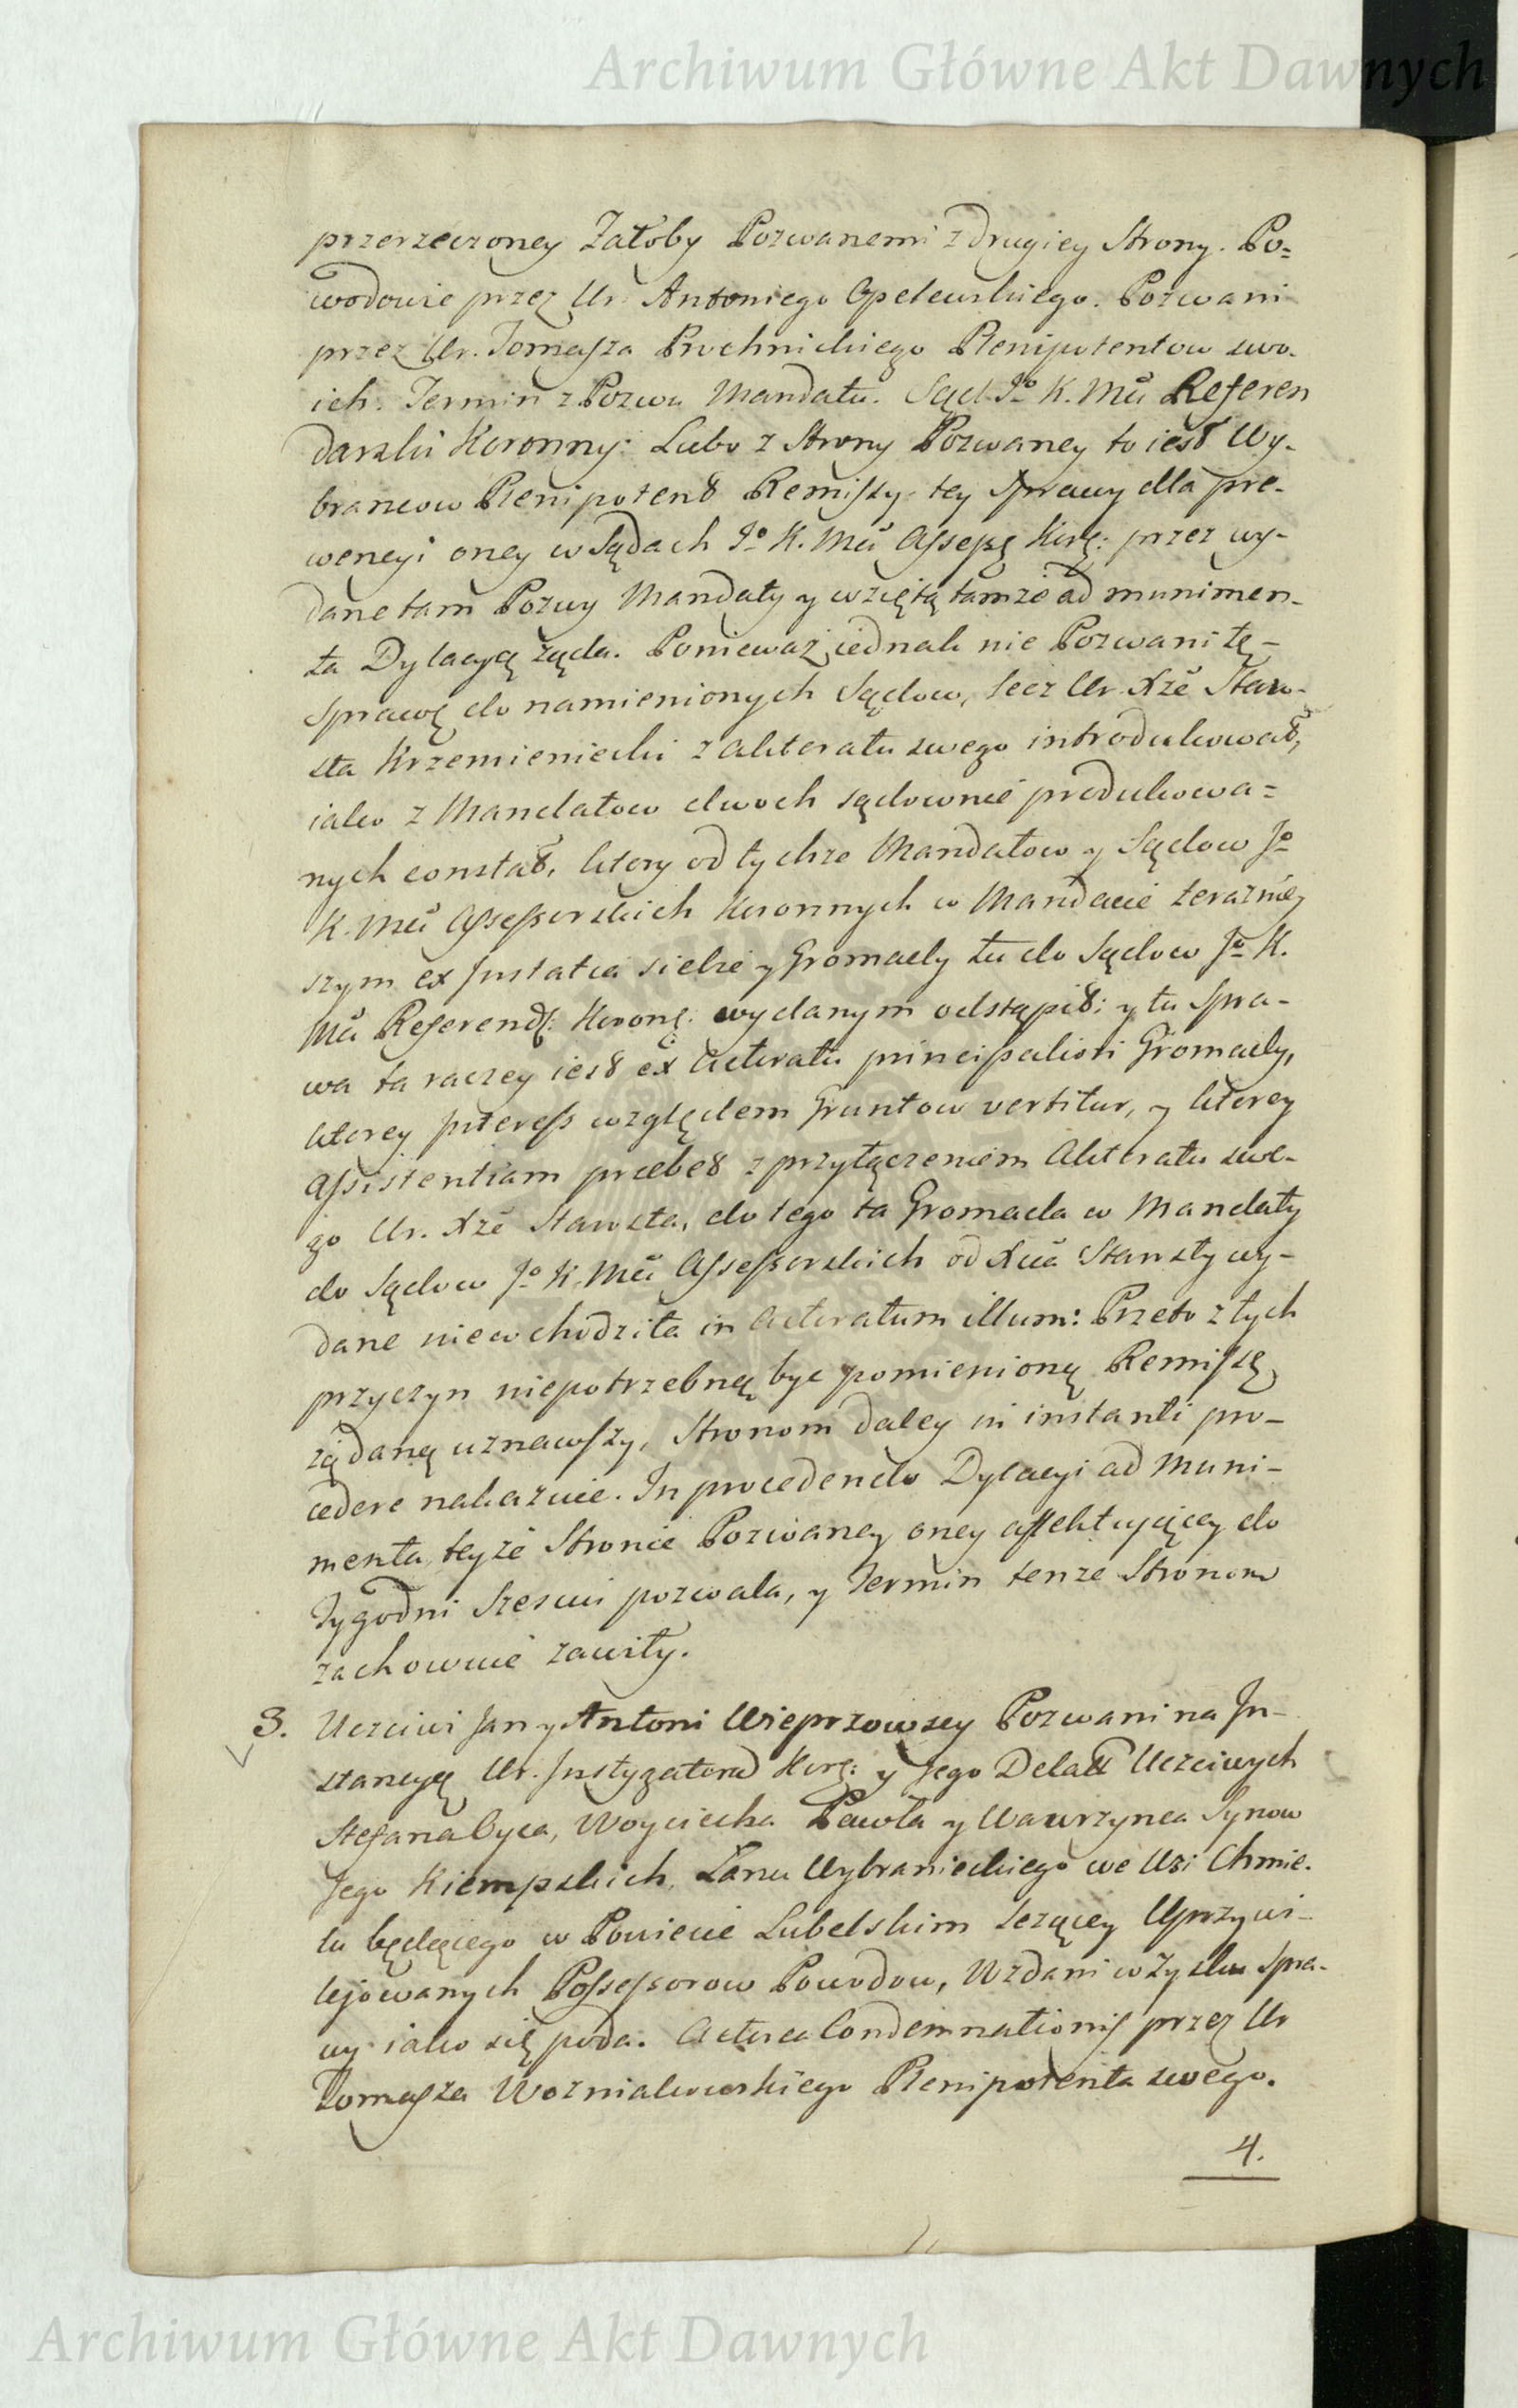 Archiwum Główne Akt Dawnych
przerzeczoney Załoby Pozwanemi z drugiey Strony. Po=
wodowie przez Ur. Antoniego Opelewskiego. Pozwani
przez Ur. Tomasza Prochnickiego Plenipotentow swo-
ich. Termin z Pozwu Mandatu. Sąd Jo K. Mci Referen
darski Koronny: Lubo z Strony Pozwaney to iest Wy-
brancow Plenipotent Remissy tey Sprawy dla pre-
wencyi oney w Sądach Jo K. Mci Assess: Kor: przez wy-
dane tam Pozwy Mandaty y wziętą tamże ad munimen-
ta Dylacyą żąda. Ponieważ iednak nie Pozwani tę-
Sprawę do namienionych Sądow, lecz Ur. Xże Staro-
sta Krzemieniecki z akteratu swego introdukował,
iako z Mandatow dwoch sądownie produkowa=
nych constat, ktory od tychze Mandatow y Sądow Jo
K. Mci Assessorskich Koronnych w Mandacie teraznie
szym ex Instatia siebie y Gromady tu do Sądow Jo K.
Mci Referend: Koron: wydanym odstąpił: y tu Spra-
wa ta raczey iest ex Actoratu principaliori Gromady,
ktorey Interess względem Gruntow vertitur, y ktorey
Assistentiam præbet z przyłączeniem Akteratu swe-
go Ur. Xże Starosta, do tego ta Gromada w Mandaty
do Sądow Jo K. Mci Assessorskich od Xcia Starosty wy-
dane nie wchodziła in Actoratum illum: Przeto z tych
przyczyn niepotrzebną byc pomienioną Remissę
żądaną uznawszy, Stronom daley in instanti pro-
cedere nakazuie. In procedendo Dylacyi ad Muni-
menta, teyże Stronie Pozwaney oney affektuiącey do
Tygodni Szesciu pozwala, y Termin tenze Stronom
zachowuie zawity.
3. Uczciwi Jan y Antoni Wieprzowscy Pozwani na In-
stancyą Ur. Instygatora Kor: y Jego Delat Uczciwych
Stefana Oyca, Woyciecha Pawła y Wawrzynca Synow
Jego Kiempskich, Łanu Wybranieckiego we Wsi Chmie-
lu będącego w Powiecie Lubelskim leżącey Uprzywi-
lejowanych Possessorow Powodow, Wzdani w Zysku Spra-
wy iako się poda. Actorea Condemnationis przez Ur
Tomasza Wozniakowskiego Plenipotenta swego.
4.
Archiwum Główne Akt Dawnych